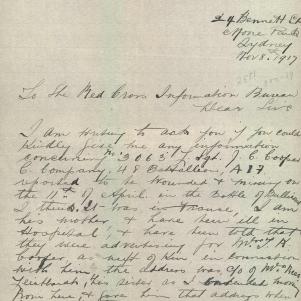 24 Bennett St
Moore Park
Sydney
Nov 8th 1917
To The Red Cross Information Bureau
Dear Sirs
I am writing to ask you if you could
kindly give me any information
concerning No 3063 Sgt. J. C. Cooper
C Company, 48 Battallion, A.I.F
reported to be wounded & missing on
the 11th of April in the Battle of Bullecourt
I think it was in France, I am
his mother & have been ill in
Hospital, & have been told that
they were advertising for
Cooper, as next of Kin in connection
with him, the address was, c/o Mrs
his sister, as I
from here, & gave him that address when